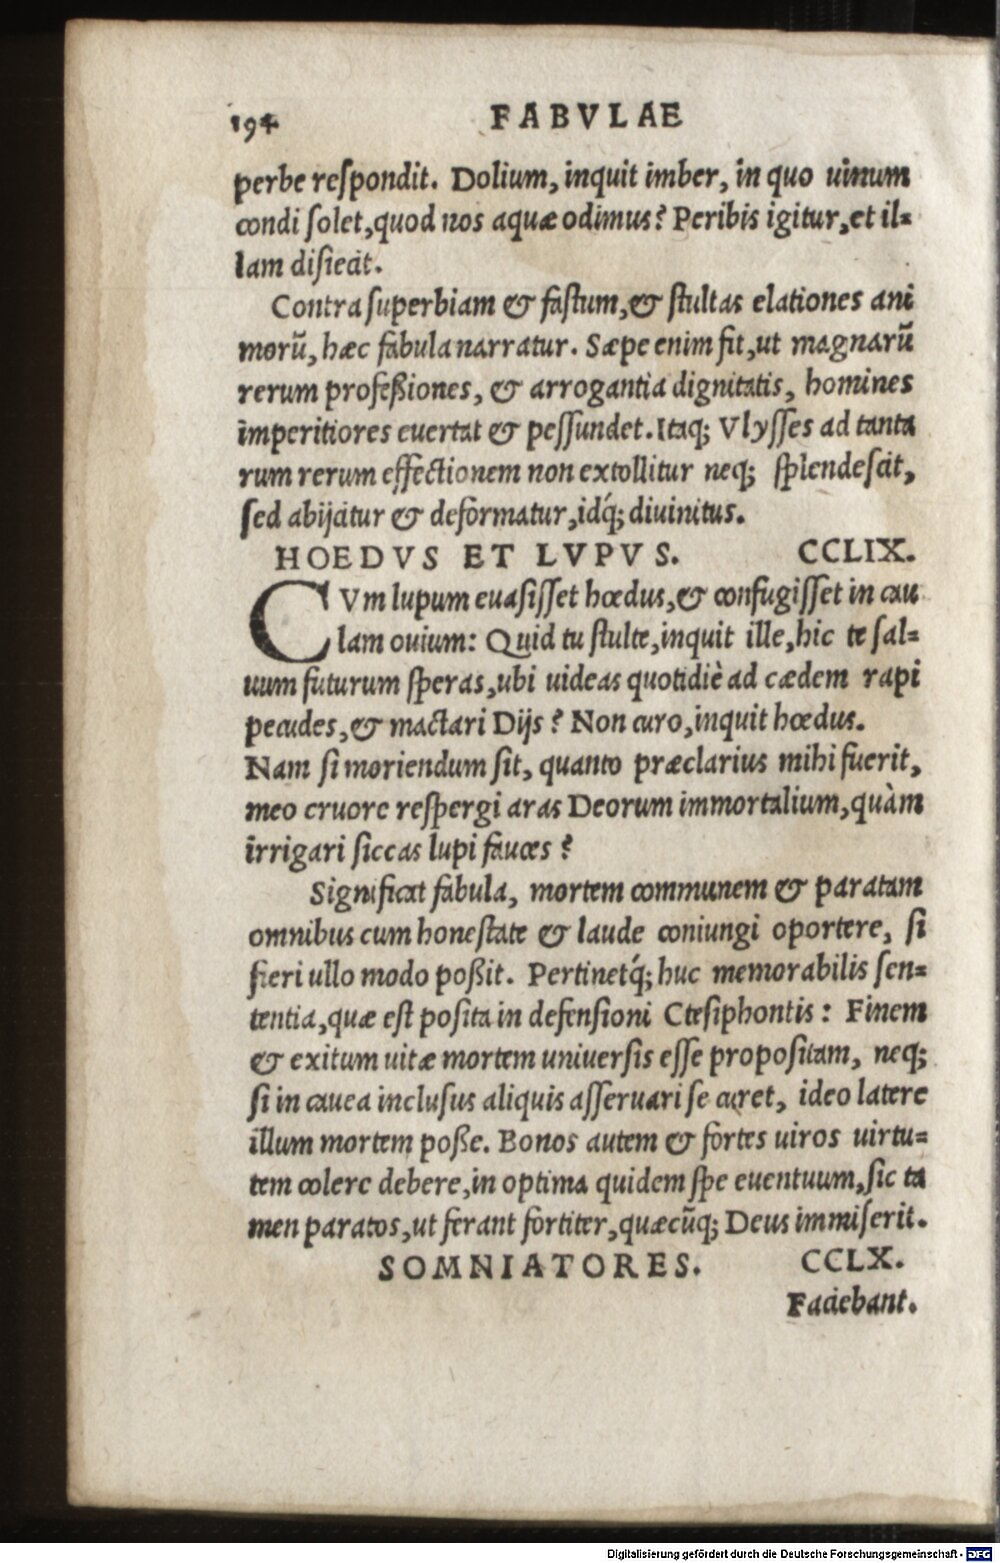 194 FABVLAE
perbe reſpondit. Dolium, inquit imber, in quo uinum
condi ſolet, quod nos aquæ odimus? Peribis igitur, et il=
lam disiecit.
Contra ſuperbiam & faſtum, & ſtultas elationes ani
morũ, hæc fabula narratur. Sæpe enim fit, ut magnarũ
rerum profeßiones, & arrogantia dignitatis, homines
imperitiores euertat & peſſundet. Itaq; Vlyſſes ad tanta
rum rerum effectionem non extollitur neq; ſplendeſcit,
ſed abijcitur & deformatur, idq́; diuinitus.
HOEDVS ET LVPVS. CCLIX.
CVm lupum euaſiſſet hœdus, & confugiſſet in cau
lam ouium: Quid tu ſtulte, inquit ille, hic te ſal=
uum futurum ſperas, ubi uideas quotidiè ad cædem rapi
pecudes, & mactari Dijs? Non curo, inquit hœdus.
Nam ſi moriendum ſit, quanto præclarius mihi fuerit,
meo cruore reſpergi aras Deorum immortalium, quàm
irrigari ſiccas lupi fauces?
Significat fabula, mortem communem & paratam
omnibus cum honeſtate & laude coniungi oportere, ſi
fieri ullo modo poßit. Pertinetq́; huc memorabilis ſen=
tentia, quæ eſt poſita in defenſioni Cteſiphontis: Finem
& exitum uitæ mortem uniuerſis eſſe propoſitam, neq;
ſi in cauea incluſus aliquis aſſeruari ſe curet, ideo latere
illum mortem poße. Bonos autem & fortes uiros uirtu=
tem colere debere, in optima quidem ſpe euentuum, ſic ta
men paratos, ut ferant fortiter, quæcũq; Deus immiſerit.
SOMNIATORES. CCLX.
Faciebant.
Digitalisierung gefördert durch die Deutsche Forschungsgemeinschaft - DFG